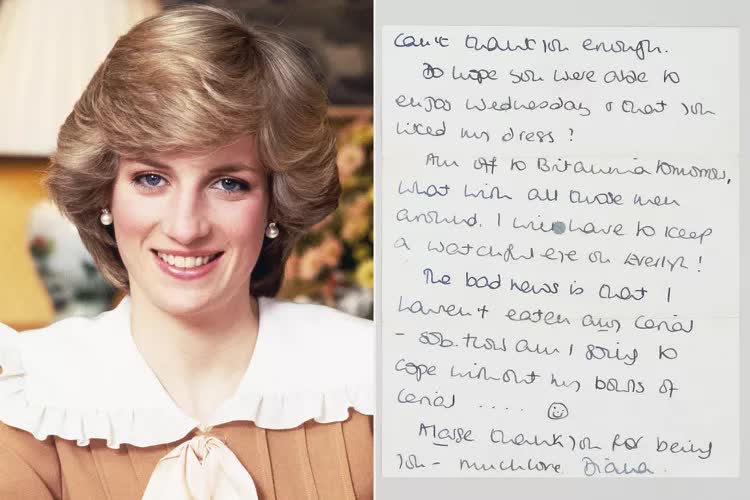 can't thank you enough.
Do hope you were able to
enjoy Wednesday & that you
liked my dress?
Am off to Britannia tomorrow,
what with all those men
around, I will have to keep
a watchful eye on Evelyn!
The bad news is that I
haven't eaten any cerial
- sob. How am I going to
cope without my bowls of
cerial ....
A large thank you for being
you - much love Diana.